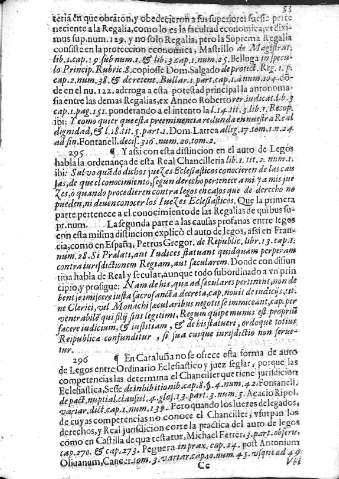 53
teria en que obraron, y obedecieron a sus superiores fuesse perte
neciente a la Regalia, como lo es la facultad economica, vt dixi
mus sup.num.129. y no solo Regalia, pero la Suprema Regalia
consiste en la proteccion economica, Mastrillo de Magistrat.
lib.1.cap.1. & lib.3.cap.1.num.25. Belluga in specu
lo Princip. Rubric.8. copiosse Dom. Salgado de protect. Reg. 1.p.
cap.2.num.38. & de retent. Bullar. 1.part.cap.1.num.104. do-
de en el nu.122. adroga a esta potestad principal la antonoma
sia entre las demas Regalias, ex Anneo Roberto rer. iudicat. lib.3
cap.1.pag.151. ponderando a el intento la l.14.tit.3.lib.1. Recop.
ibi: Y como quier que esta preeminencia redunda en nuestra Real
dignidad, & l.18.tit.5.part.1. Dom. Larrea alleg.17.num.1. n.24
ad fin. Fontanell. decis.316.num.20.tom.2.
295 ¶ Y assi con esta distincion en el auto de Legos
habla la ordenança de esta Real Chancilleria lib.1.tit.2.num.1.
ibi: Salvo quãdo dichos juezes Eclesiasticos conocieren de las cau
sas, de que el conocimiento, segun derecho pertenece a mi y a mis jue
zes, ò quando procedieren contra legos en casos que de derecho no
pueden, ni deven conocer los Iuezes Eclesiasticos. Que la primera
parte pertenece a el conocimiento de las Regalias de quibus su-
pr. num. La segunda parte a las causas profanas entre legos
con esta misma distincion explicó el auto de legos, assi en Fran-
cia, como en España, Petrus Gregor. de Republic. libr.13. cap.1.
num.28. Si Prælati, aut Iudices statuant quidquam perperam
contra iurisdictionem Regiam, aut sæcularem. Donde con distin
tiua habla de Real y secular, aunque todo subordinado a vn prin
cipio, y prosigue: Nam de his, quæ ad sæculares pertinent, non de
bent se immiscere iusta sacrosancta decreta, cap. novit de iudicijs,
ne Clerici, vel Monachi sæcularibus negotijs se immisceant, cap. per
venerabilē qui filij sint legitimi, Regum quippe munus est propriũ
facere iudicium, & iustitiam, & de his statuere, ordoque totius
Republica confunditur, si sua cuique iurisdictio non serue
tur.
296 ¶ En Cataluña no se ofrece esta forma de auto
de Legos entre Ordinario Eclesiastico y juez seglar, porque las
competencias las determina el Chanciller que tiene jurisdicion
Eclesiastica, Sesse de inhibitionib. cap.8.§.4.num.42. Fontanell.
de pact. nuptial. clausul.4. glos.13.part.3. num.5. Acacio Ripol.
variar. dict.cap.1.num.139. Pero quando los juezes delegados,
de cuyas competencias no conoce el Chanciller, vsurpan los
derechos, y Real jurisdicion corre la practica del auto de legos
como en Castilla de qua testatur, Michael Ferrer. 3.part. observ.
cap.270. & cap.273. Peguera in prax. cap.14. post Antonium
Oliuanum, Cancer. tom.3. variar. cap.10. num.43. vsque ad 49
Cc Vbi